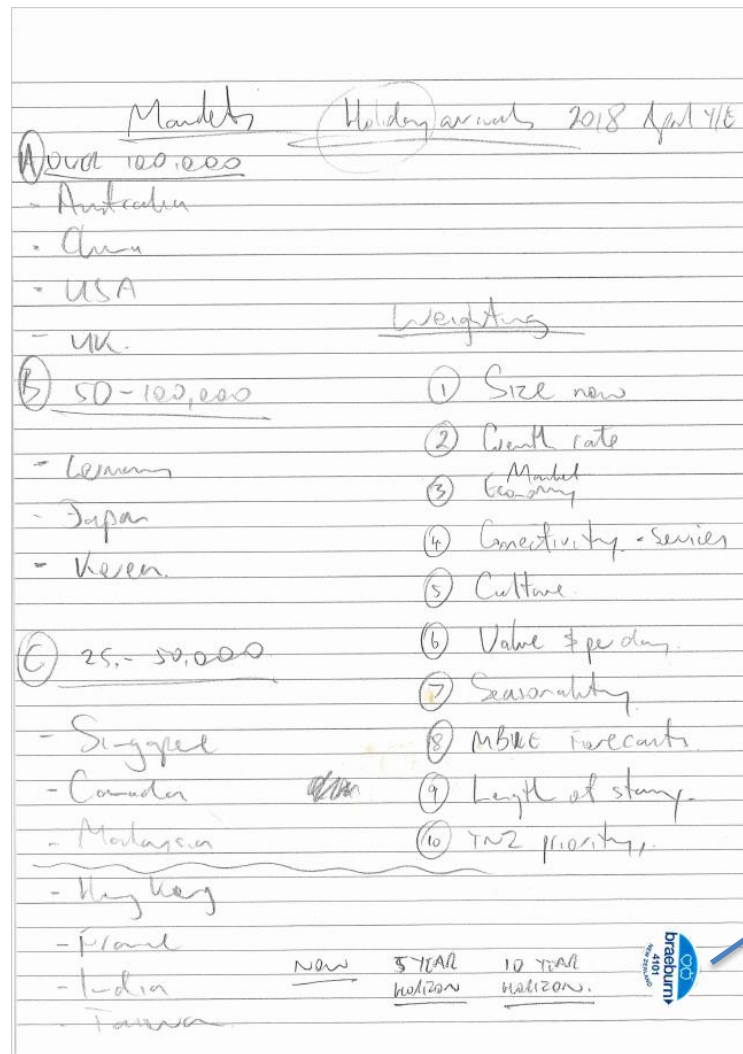 Markets Holiday arrivals 2018 April Y/E
A OVER 100,000
- Australia
- China
- USA
- UK.
B 50-100,000
- Germany
- Japan
- Korea.
C 25.- 50,000
- Singapore
- Canada
- Malaysia
- Hong Kong
- France
- India
- Taiwan
Weighting
1 Size now
2 Growth rate
3 Market Economy
4 Connectivity - Services
5 Culture.
6 Value $ per day.
7 Seasonality
8 MBIE Forecasts.
9 Length of stay.
10 TNZ priority,
NOW 5 YEAR HORIZON 10 YEAR HORIZON.
braeburn
4101
NEW ZEALAND